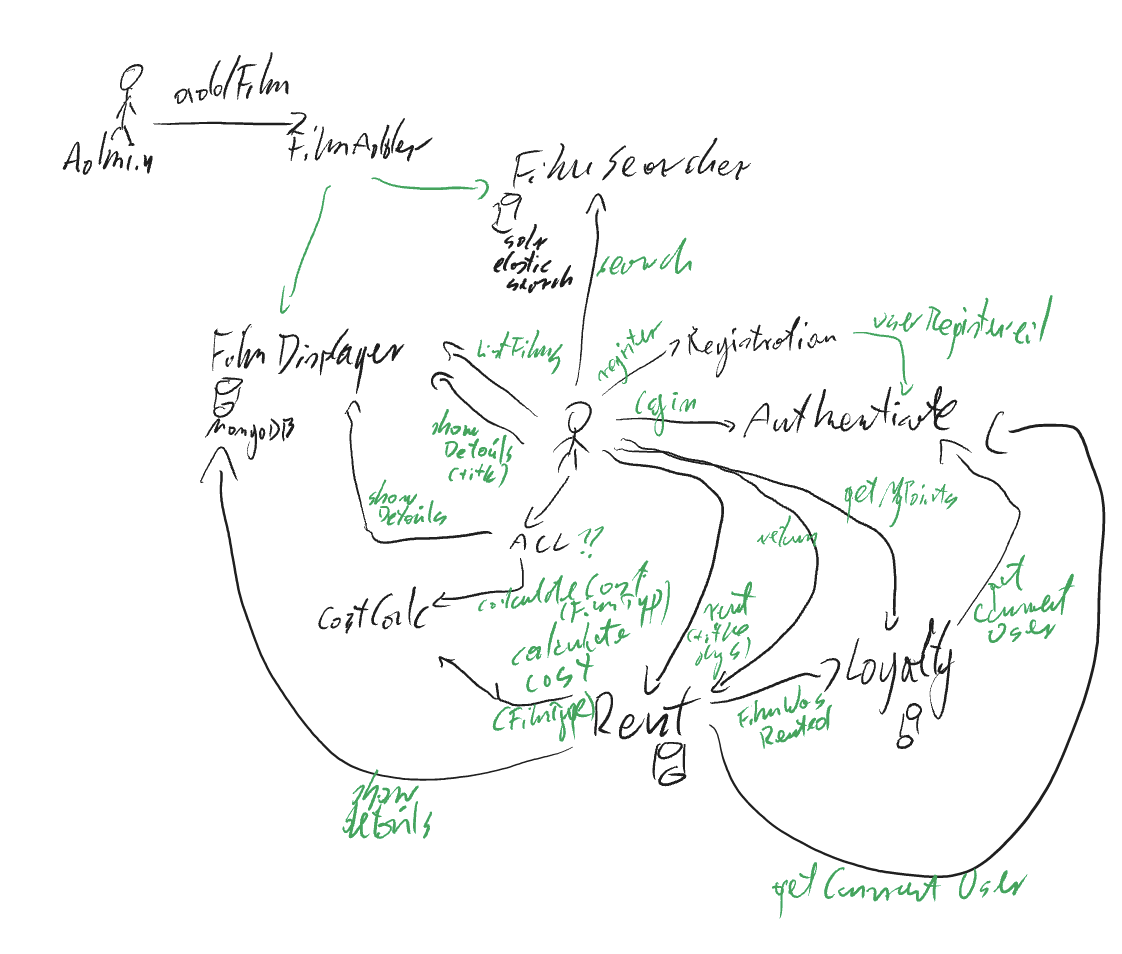 addFilm
Admin
FilmAdder
FilmSearcher
solr
elastic
search
search
userRegistered
FilmDisplayer
ListFilms
register
Registration
MongoDB
login
Authenticate
show
Details
(title)
getMyPoints
show
Details
ACL ??
return
calculateCost
(FilmType)
CostCalc
get
Current
User
rent
(title
days)
calculate
cost
(FilmType)
Rent
Loyalty
FilmWas
Rented
show
details
getCurrent User